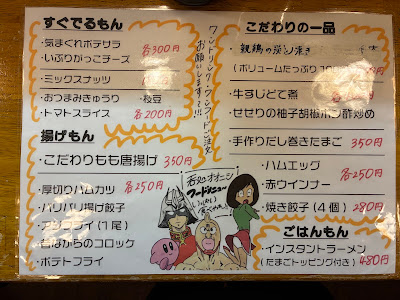 すぐでるもん
・気まぐれポテサラ
・いぶりがっこチーズ
各300円
・ミックスナッツ
・おつまみきゅうり ・枝豆
・トマトスライス 各200円
揚げもん
・こだわりもも唐揚げ 350円
・厚切りハムカツ
各250円
・パリパリ揚げ餃子
・アジフライ(1尾)
・昔ながらのコロッケ
・ポテトフライ
ワンドリンク・ワンフードご注文
お願いします!!!
フードメニュー
こだわりの一品
・親鶏の炭火焼き
(ボリュームたっぷり
・牛すじどて煮
・せせりの柚子胡椒ポン酢炒め
・手作りだし巻きたまご 350円
・ハムエッグ
・赤ウインナー
各250円
・焼き餃子(4個) 280円
ごはんもん
・インスタントラーメン
(たまごトッピング付き) 480円